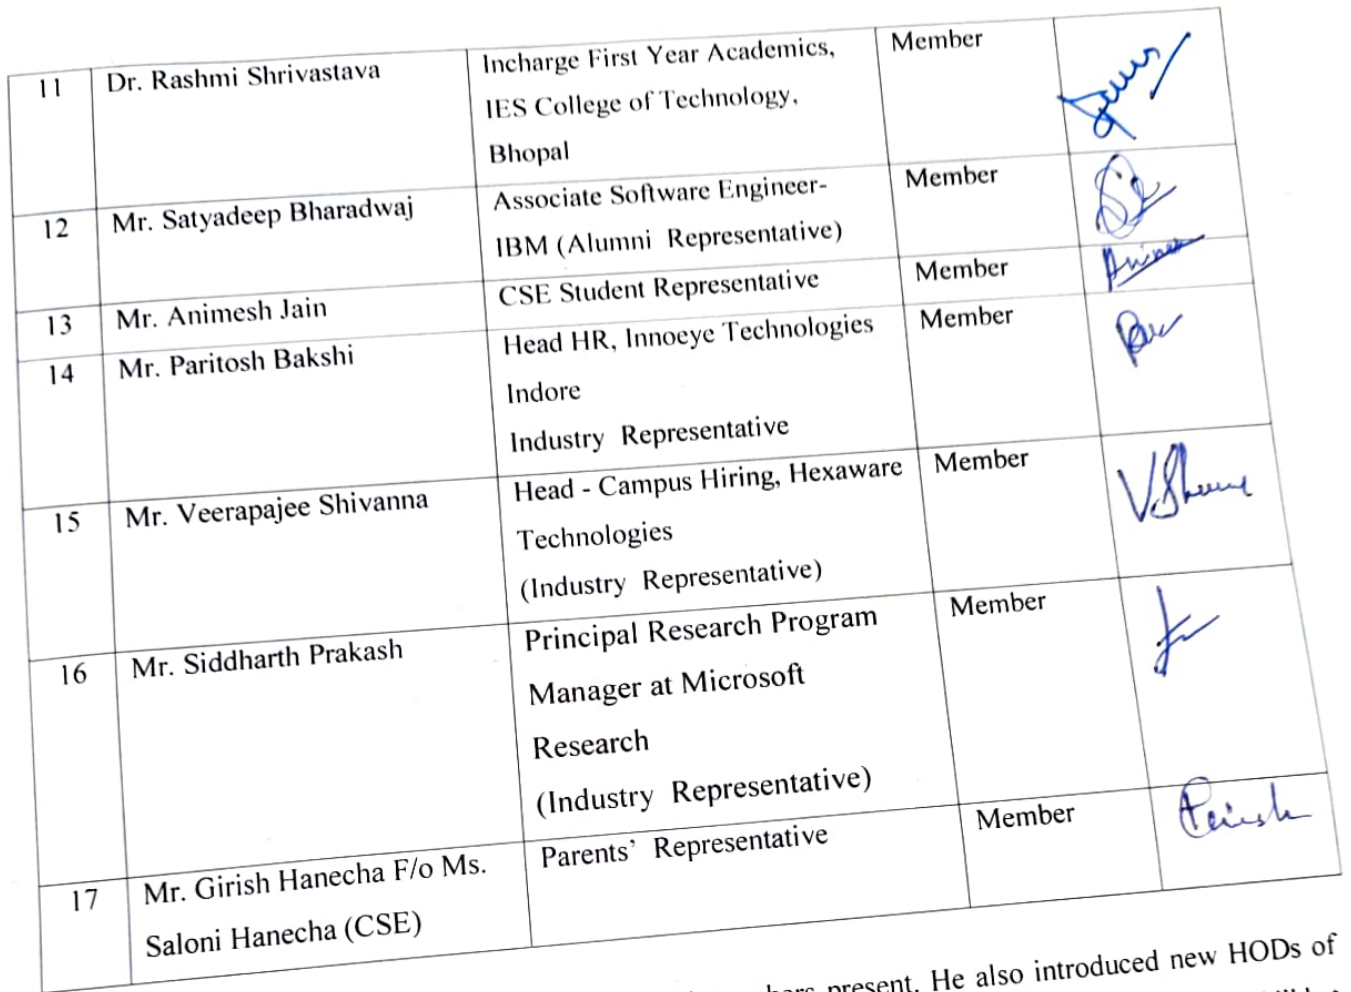 11 Dr. Rashmi Shrivastava Incharge First Year Academics, Member
IES College of Technology,
Bhopal
12 Mr. Satyadeep Bharadwaj Associate Software Engineer- Member
IBM (Alumni Representative)
13 Mr. Animesh Jain CSE Student Representative Member
14 Mr. Paritosh Bakshi Head HR, Innoeye Technologies Member
Indore
Industry Representative
15 Mr. Veerapajee Shivanna Head - Campus Hiring, Hexaware Member
Technologies
(Industry Representative)
16 Mr. Siddharth Prakash Principal Research Program Member
Manager at Microsoft
Research
(Industry Representative)
17 Mr. Girish Hanecha F/o Ms. Parents' Representative Member
Saloni Hanecha (CSE)
present. He also introduced new HODs of